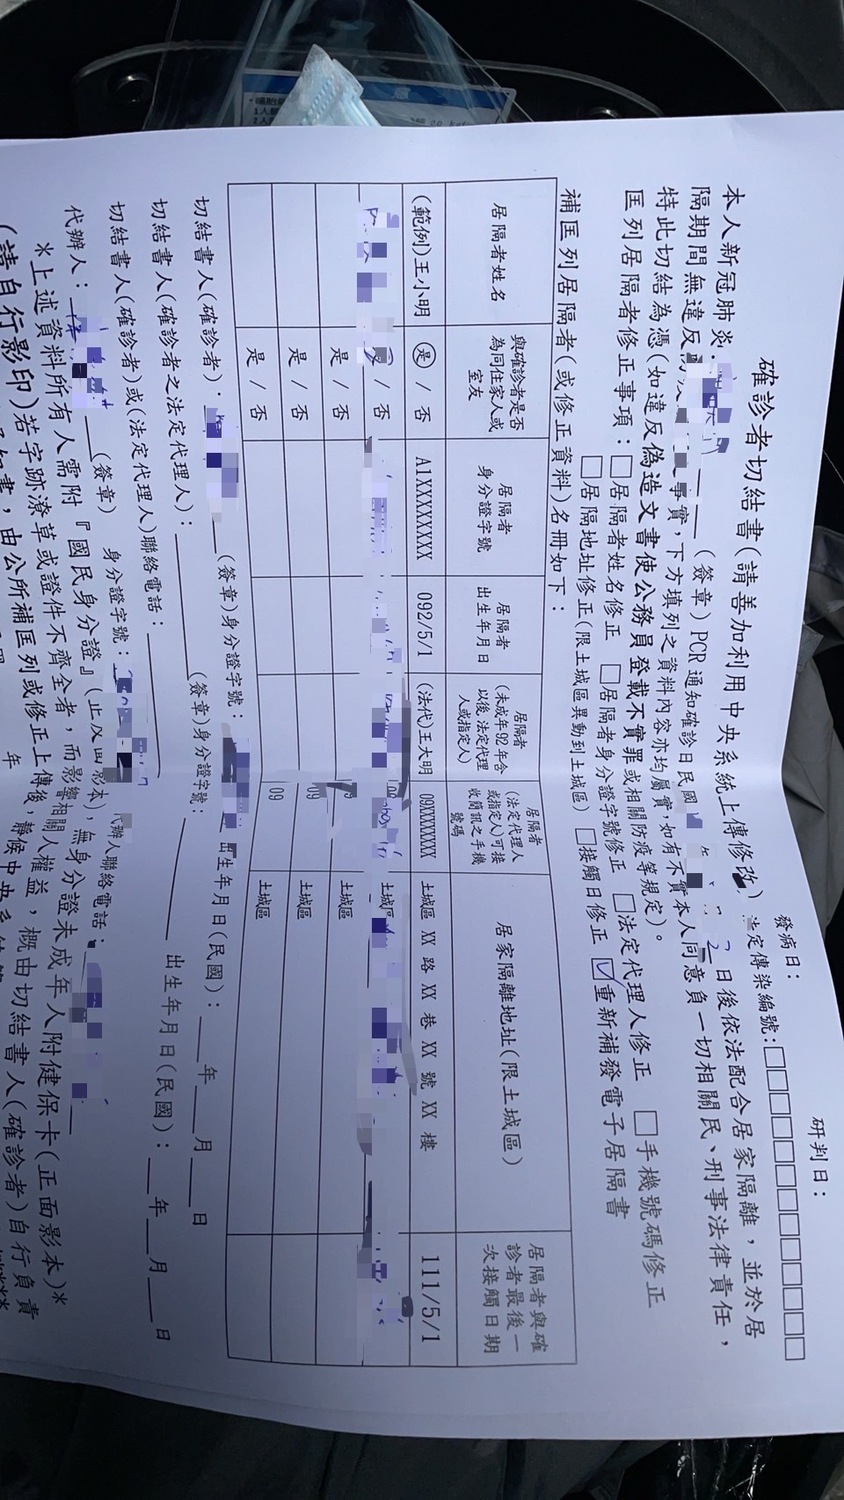 研判日：
發病日：
確診者切結書(請善加利用中央系統上傳修改) 法定傳染編號：□□□□□□□□□□□□□
本人新冠肺炎： (簽章) PCR 通知確診日民國 年 日後依法配合居家隔離，並於居
隔期間無違反 事實，下方填列之資料內容亦均屬實，如有不實本人同意負一切相關民、刑事法律責任，
特此切結為憑(如違反偽造文書使公務員登載不實罪或相關防疫等規定)。
匡列居隔者修正事項：□居隔者姓名修正 □居隔者身分證字號修正 □法定代理人修正 □手機號碼修正
□居隔地址修正(限土城區異動到土城區) □接觸日修正 ☑重新補發電子居隔書
補匡列居隔者(或修正資料)名冊如下：
居隔者姓名 與確診者是否為同住家人或室友 居隔者身分證字號 居隔者出生年月日 居隔者(未成年92年含以後,法定代理人或指定人) 居隔者(法定代理人或指定人)可接收簡訊之手機號碼 居家隔離地址(限土城區) 居隔者與確診者最後一次接觸日期
(範例)王小明 是 / 否 A1XXXXXXXX 092/5/1 (法代)王大明 09XXXXXXXX 土城區 XX 路 XX 巷 XX 號 XX 樓 111/5/1
/ 否 土城區
是 / 否 土城區
是 / 否 09 土城區
是 / 否 09 土城區
切結書人(確診者)： (簽章)身分證字號： 出生年月日(民國)： 年 月 日
切結書人(確診者之法定代理人)： (簽章)身分證字號： 出生年月日(民國)： 年 月 日
切結書人(確診者)或(法定代理人)聯絡電話：
代辦人： (簽章) 身分證字號： 代辦人聯絡電話：
*上述資料所有人需附『國民身分證』(正反面影本)，無身分證未成年人附健保卡(正面影本)*
(請自行影印)若字跡潦草或證件不齊全者，而影響相關人權益，概由切結書人(確診者)自行負責
，由公所補匡列或修正上傳後，靜候中央系
年